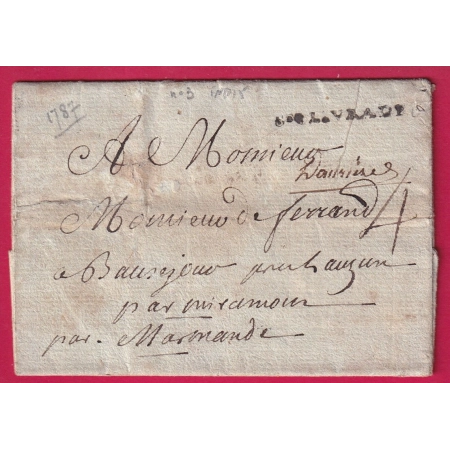 1787
n°3
Ste LIVRADE
A Monsieur
Monsieur de ferrand 4
a Beausejour pres Lauzun
par miramon
par. Marmande